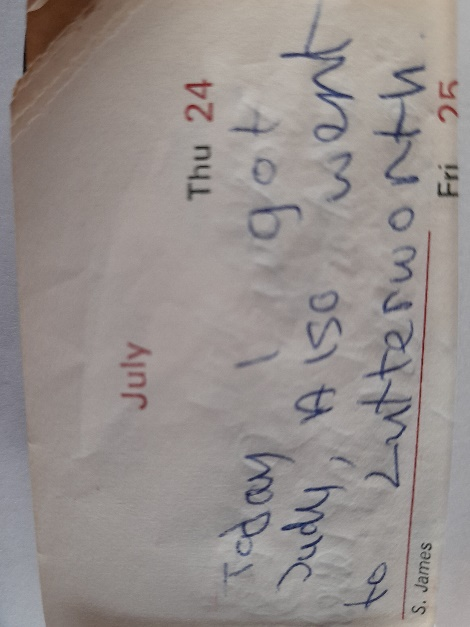 July
Thu 24
Today I got
Judy, Also went
to Lutterworth.
S. James
Fri 25